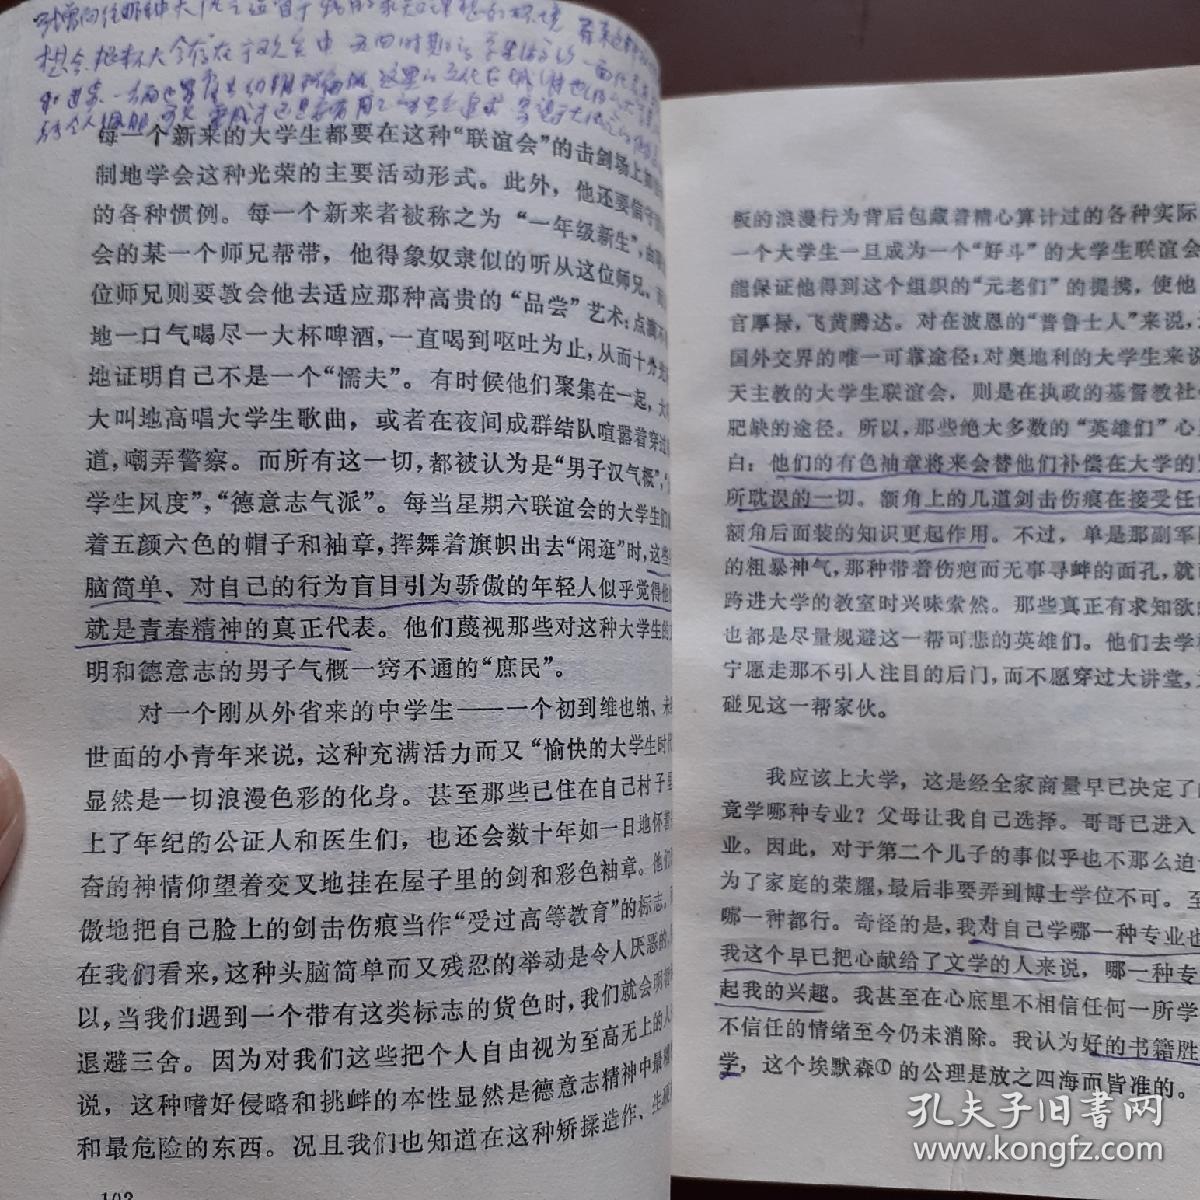 每一个新来的大学生都要在这种“联谊会”的击剑场上
制地学会这种光荣的主要活动形式。此外，他还要信守
的各种惯例。每一个新来者被称之为“一年级新生”，由
会的某一个师兄帮带，他得象奴隶似的听从这位师兄、
位师兄则要教会他去适应那种高贵的“品尝”艺术：点滴不
地一口气喝尽一大杯啤酒，一直喝到呕吐为止，从而十分
地证明自己不是一个“懦夫”。有时候他们聚集在一起，大
大叫地高唱大学生歌曲，或者在夜间成群结队喧嚣着穿过
道，嘲弄警察。而所有这一切，都被认为是“男子汉气概”，
学生风度”，“德意志气派”。每当星期六联谊会的大学生们
着五颜六色的帽子和袖章，挥舞着旗帜出去“闲逛”时，这些
脑简单、对自己的行为盲目引为骄傲的年轻人似乎觉得他
就是青春精神的真正代表。他们蔑视那些对这种大学生的
明和德意志的男子气概一窍不通的“庶民”。
对一个刚从外省来的中学生——一个初到维也纳、未
世面的小青年来说，这种充满活力而又“愉快的大学生时代
显然是一切浪漫色彩的化身。甚至那些已住在自己村子里
上了年纪的公证人和医生们，也还会数十年如一日地怀着
奋的神情仰望着交叉地挂在屋子里的剑和彩色袖章。他们
傲地把自己脸上的剑击伤痕当作“受过高等教育”的标志。
在我们看来，这种头脑简单而又残忍的举动是令人厌恶的，
以，当我们遇到一个带有这类标志的货色时，我们就会明智
退避三舍。因为对我们这些把个人自由视为至高无上的人
说，这种嗜好侵略和挑衅的本性显然是德意志精神中最
和最危险的东西。况且我们也知道在这种矫揉造作、生
102
板的浪漫行为背后包藏着精心算计过的各种实际
一个大学生一旦成为一个“好斗”的大学生联谊会
能保证他得到这个组织的“元老们”的提携，使他
官厚禄，飞黄腾达。对在波恩的“普鲁士人”来说，
国外交界的唯一可靠途径；对奥地利的大学生来说
天主教的大学生联谊会，则是在执政的基督教社
肥缺的途径。所以，那些绝大多数的“英雄们”心
白：他们的有色袖章将来会替他们补偿在大学的
所耽误的一切。额角上的几道剑击伤痕在接受任
额角后面装的知识更起作用。不过，单是那副军
的粗暴神气，那种带着伤疤而无事寻衅的面孔，就
跨进大学的教室时兴味索然。那些真正有求知欲
也都是尽量规避这一帮可悲的英雄们。他们去学
宁愿走那不引人注目的后门，而不愿穿过大讲堂，
碰见这一帮家伙。
我应该上大学，这是经全家商量早已决定了的
竟学哪种专业？父母让我自己选择。哥哥已进入
业。因此，对于第二个儿子的事似乎也不那么迫
为了家庭的荣耀，最后非要弄到博士学位不可。至
哪一种都行。奇怪的是，我对自己学哪一种专业也
我这个早已把心献给了文学的人来说，哪一种专
起我的兴趣。我甚至在心底里不相信任何一所学
不信任的情绪至今仍未消除。我认为好的书籍胜
学，这个埃默森①的公理是放之四海而皆准的。
孔夫子旧书网
www.kongfz.com